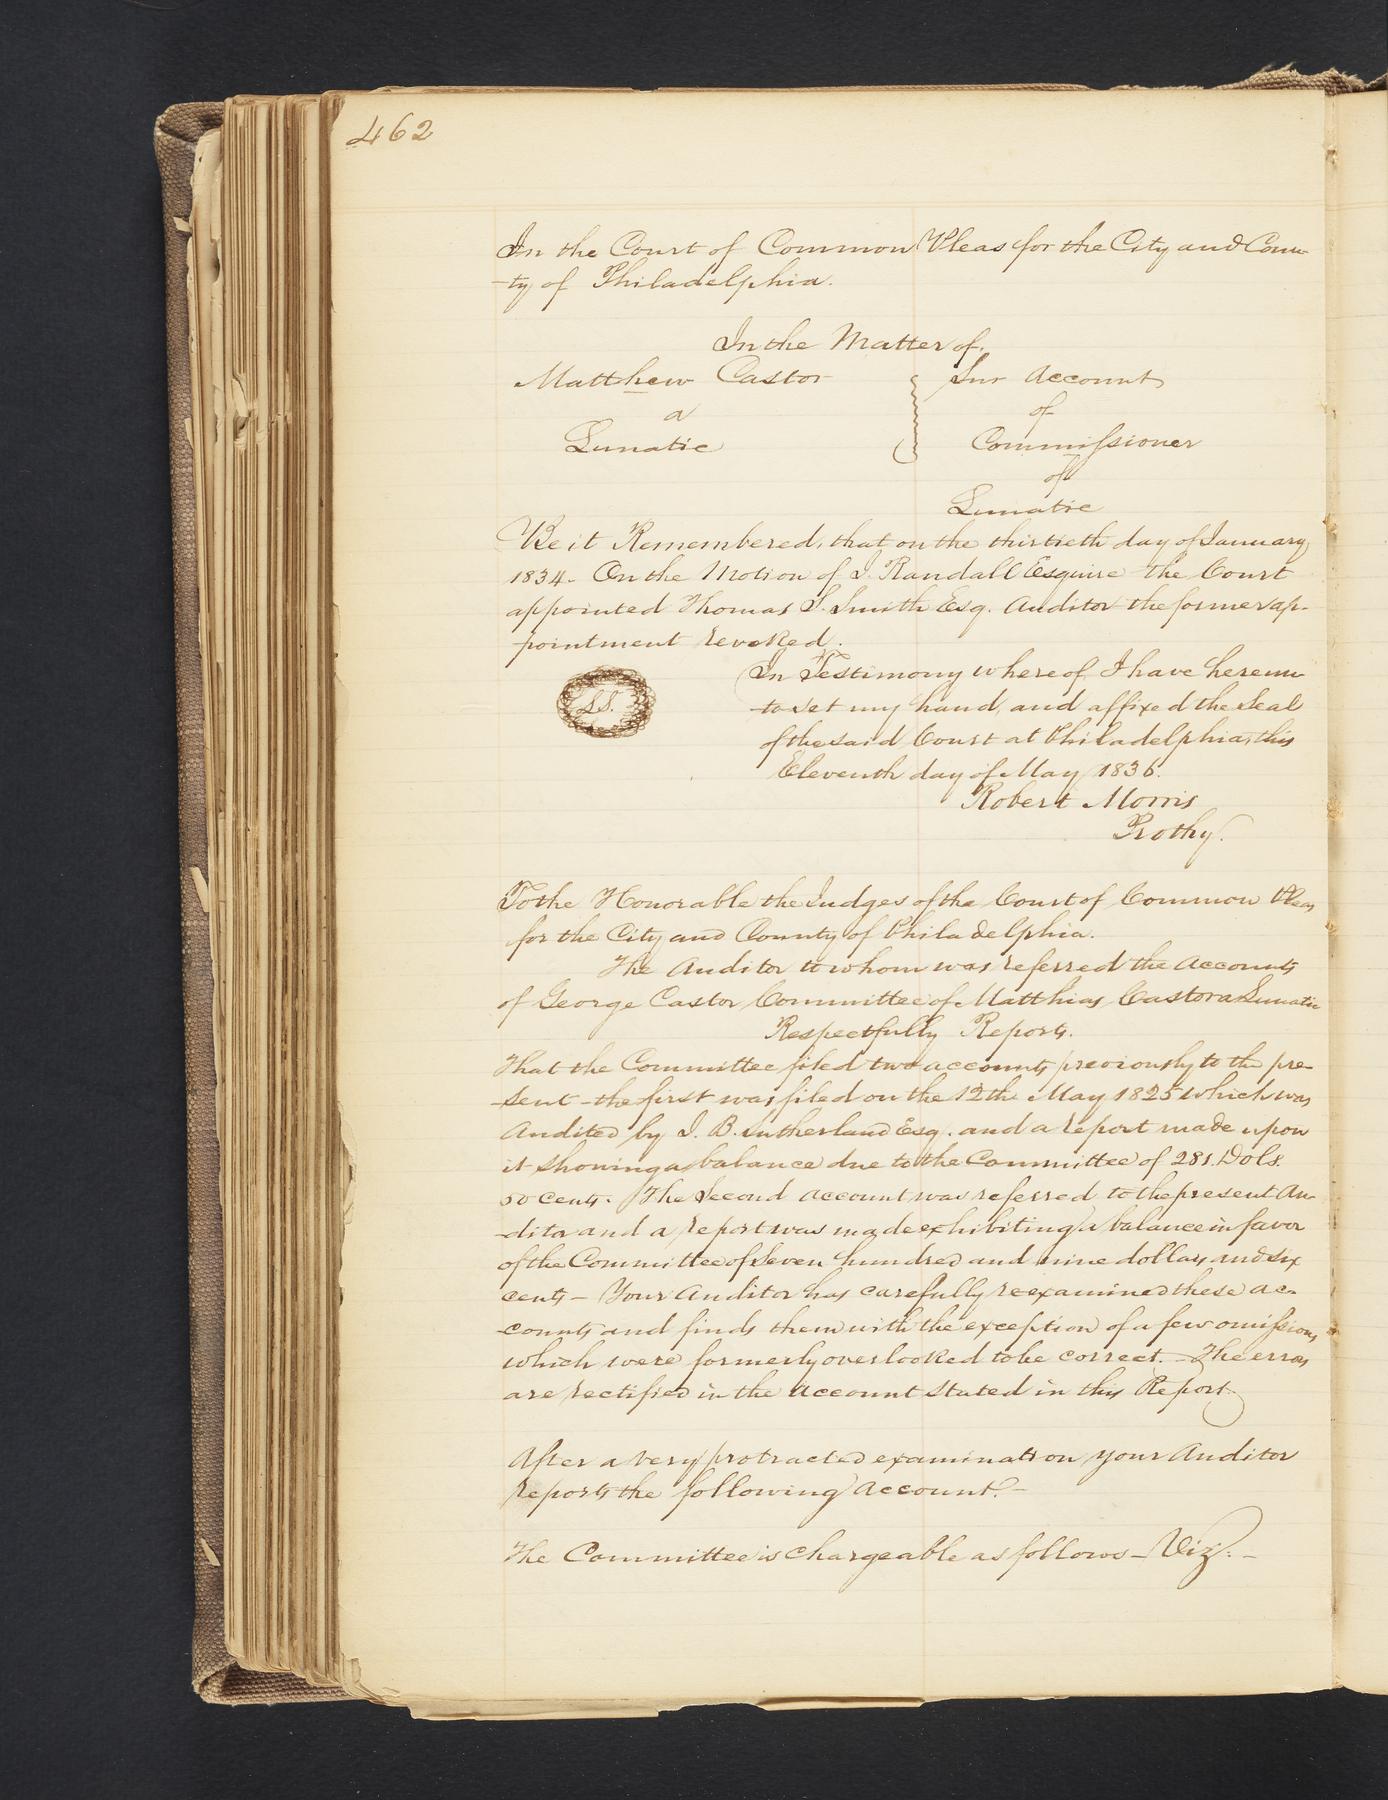 462
In the Court of Common Pleas for the City and Coun-
-ty of Philadelphia.
In the Matter of.
Matthew Castor
a
Lunatic
Sur Account
of
Commissioner
of
Lunatic
Be it Remembered, that on the thirtieth day of January
1834. On the Motion of J. Randall Esquire the Court
appointed Thomas S. Smith Esq. Auditor the former ap-
pointment revoked.
L.S.
In Testimony whereof, I have hereun-
-to set my hand, and affixed the Seal
of the said Court at Philadelphia, this
Eleventh day of May 1836.
Robert Morris
Prothy.
To the Honorable the Judges of the Court of Common Pleas
for the City and County of Philadelphia.
The Auditor to whom was referred the Accounts
of George Castor Committee of Matthias Castor a Lunatic
Respectfully Reports.
That the Committee filed two accounts previously to the pre-
-sent - the first was filed on the 12th May 1825 which was
Audited by J. B. Sutherland Esq. and a report made upon
it showing a balance due to the Committee of 281. Dols.
50 cents. The Second account was referred to the present Au-
-ditor and a report was made exhibiting a balance in favor
of the Committee of Seven hundred and nine dollars and six
cents - Your Auditor has carefully reexamined these ac-
-counts and finds them with the exception of a few omissions
which were formerly overlooked to be correct. - The errors
are rectified in the account stated in this Report.
After a very protracted examination your Auditor
reports the following account. -
The Committee is chargeable as follows - Viz: -